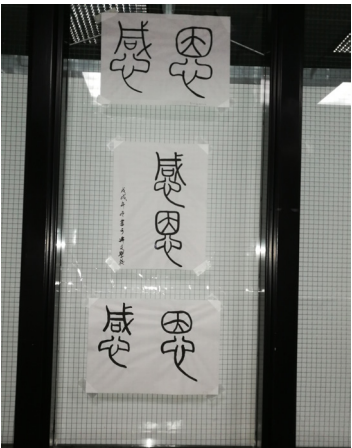 感恩
感恩
感恩